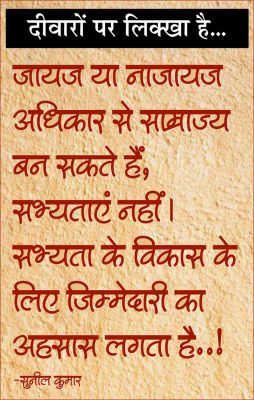 दीवारों पर लिक्खा है...
जायज या नाजायज
अधिकार से साम्राज्य
बन सकते हैं,
सभ्यताएं नहीं।
सभ्यता के विकास के
लिए जिम्मेदारी का
अहसास लगता है..!
-सुनील कुमार